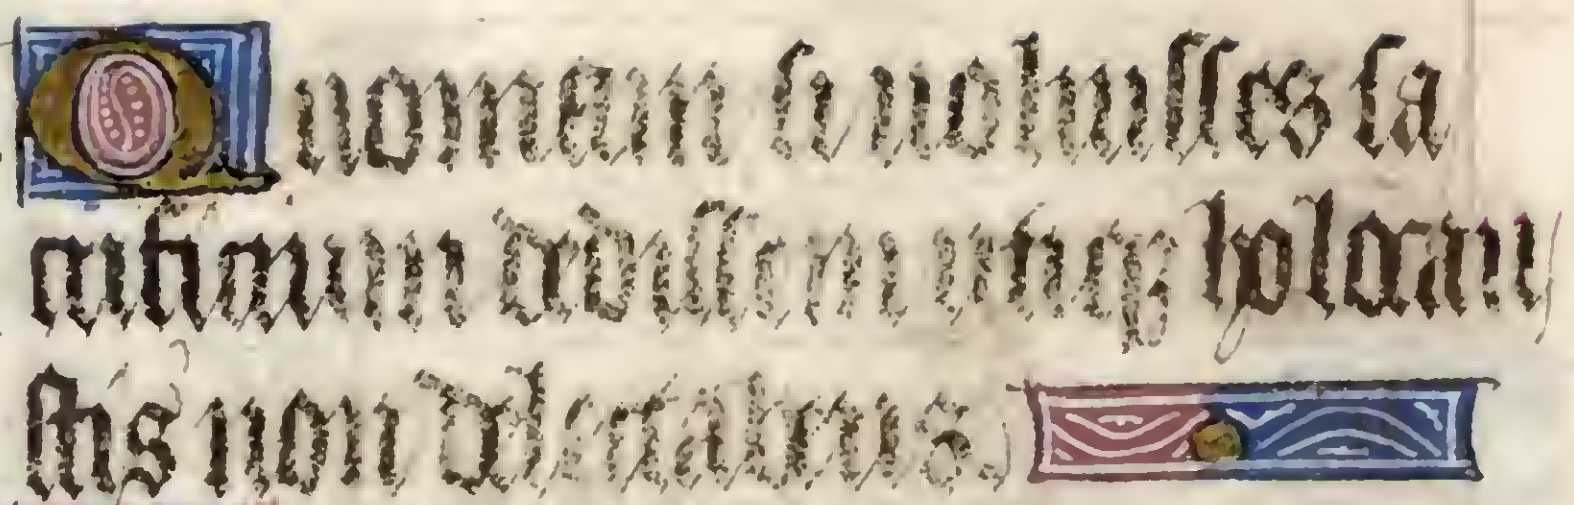 Quoniam si uoluisses sa
crificium dedissem utiqꝫ holocau
stis non delectaberis